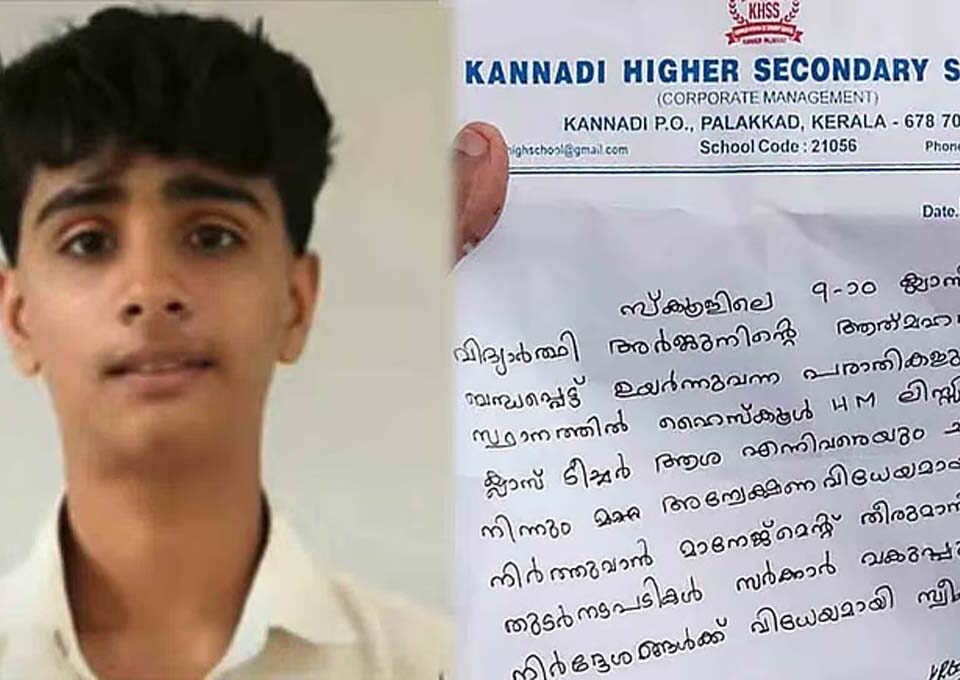 KHSS
KANNADI HIGHER SECONDARY S
(CORPORATE MANAGEMENT)
KANNADI P.O., PALAKKAD, KERALA - 678 70
highschool@gmail.com School Code : 21056 Phone
Date.
സ്കൂളിലെ 9-ാo ക്ലാസ്
വിദ്യാർത്ഥി അർജുനിന്റെ ആത്മഹ
ബന്ധപ്പെട്ട് ഉയർന്നുവന്ന പരാതികളു
സ്ഥാനത്തിൽ ഹൈസ്കൂൾ HM ലിസ്സി
ക്ലാസ് ടീച്ചർ ആശ എന്നിവരെയും ച
നിന്നും അന്വേക്ഷണ വിധേയമായ
നിർത്തുവാൻ മാനേജ്മെന്റ് തീരുമാനി
തുടർനടപടികൾ സർക്കാർ വകുപ്പു
നിർദ്ദേശങ്ങൾക്ക് വിധേയമായി സ്വീക